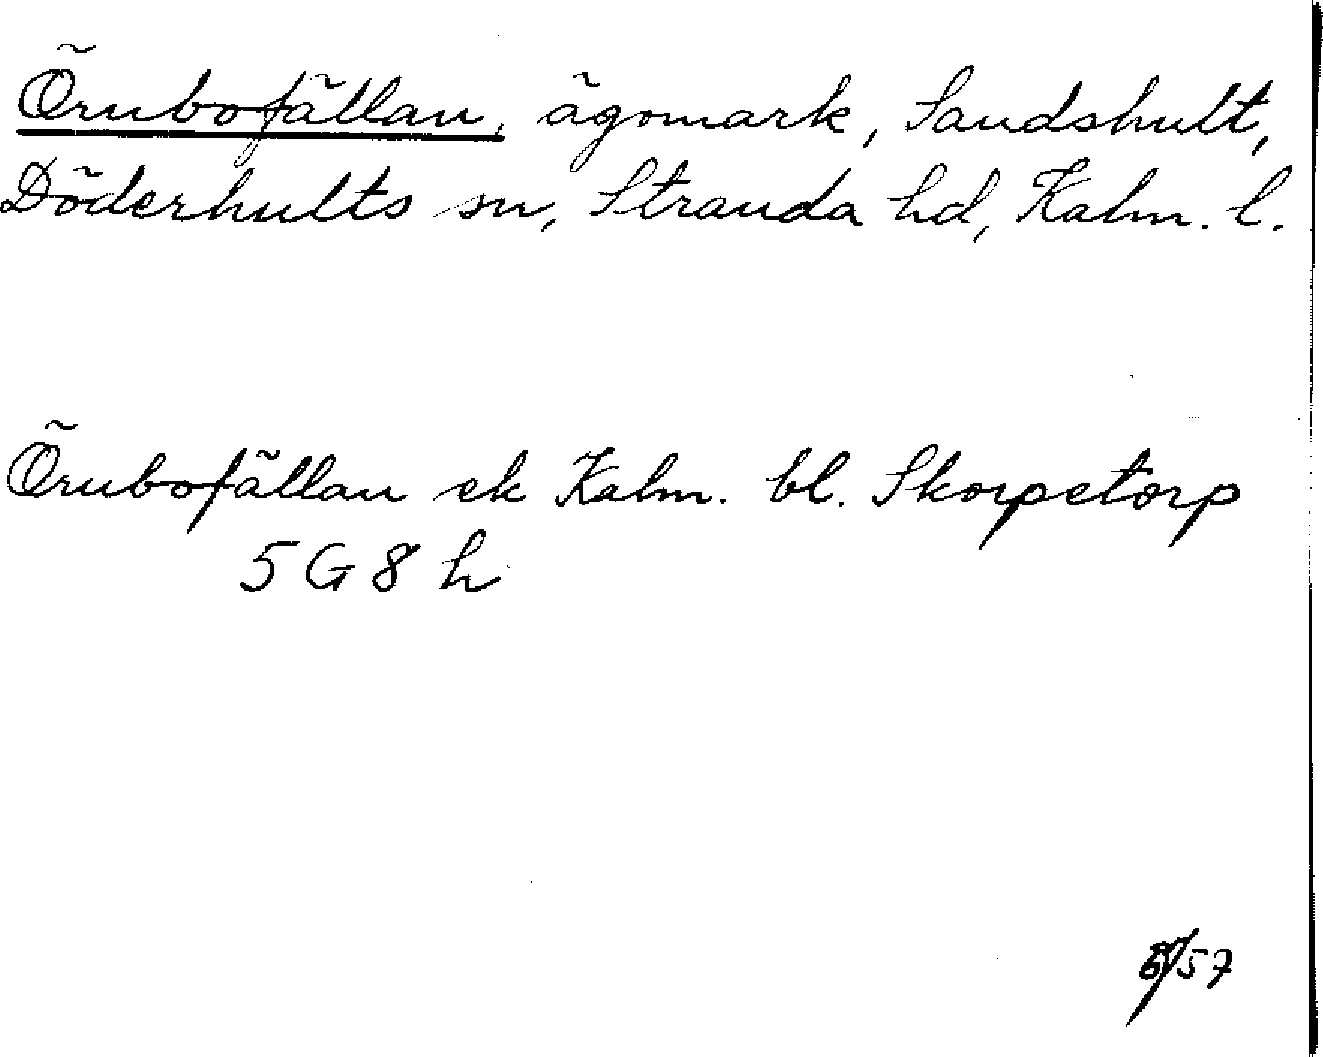 Örubofällan, ägomark, Sandshult,
Döderhults sn, Stranda hd, Kalm. l.
Örubofällan ek Kalm. bl. Skorpetorp
5 G 8 h